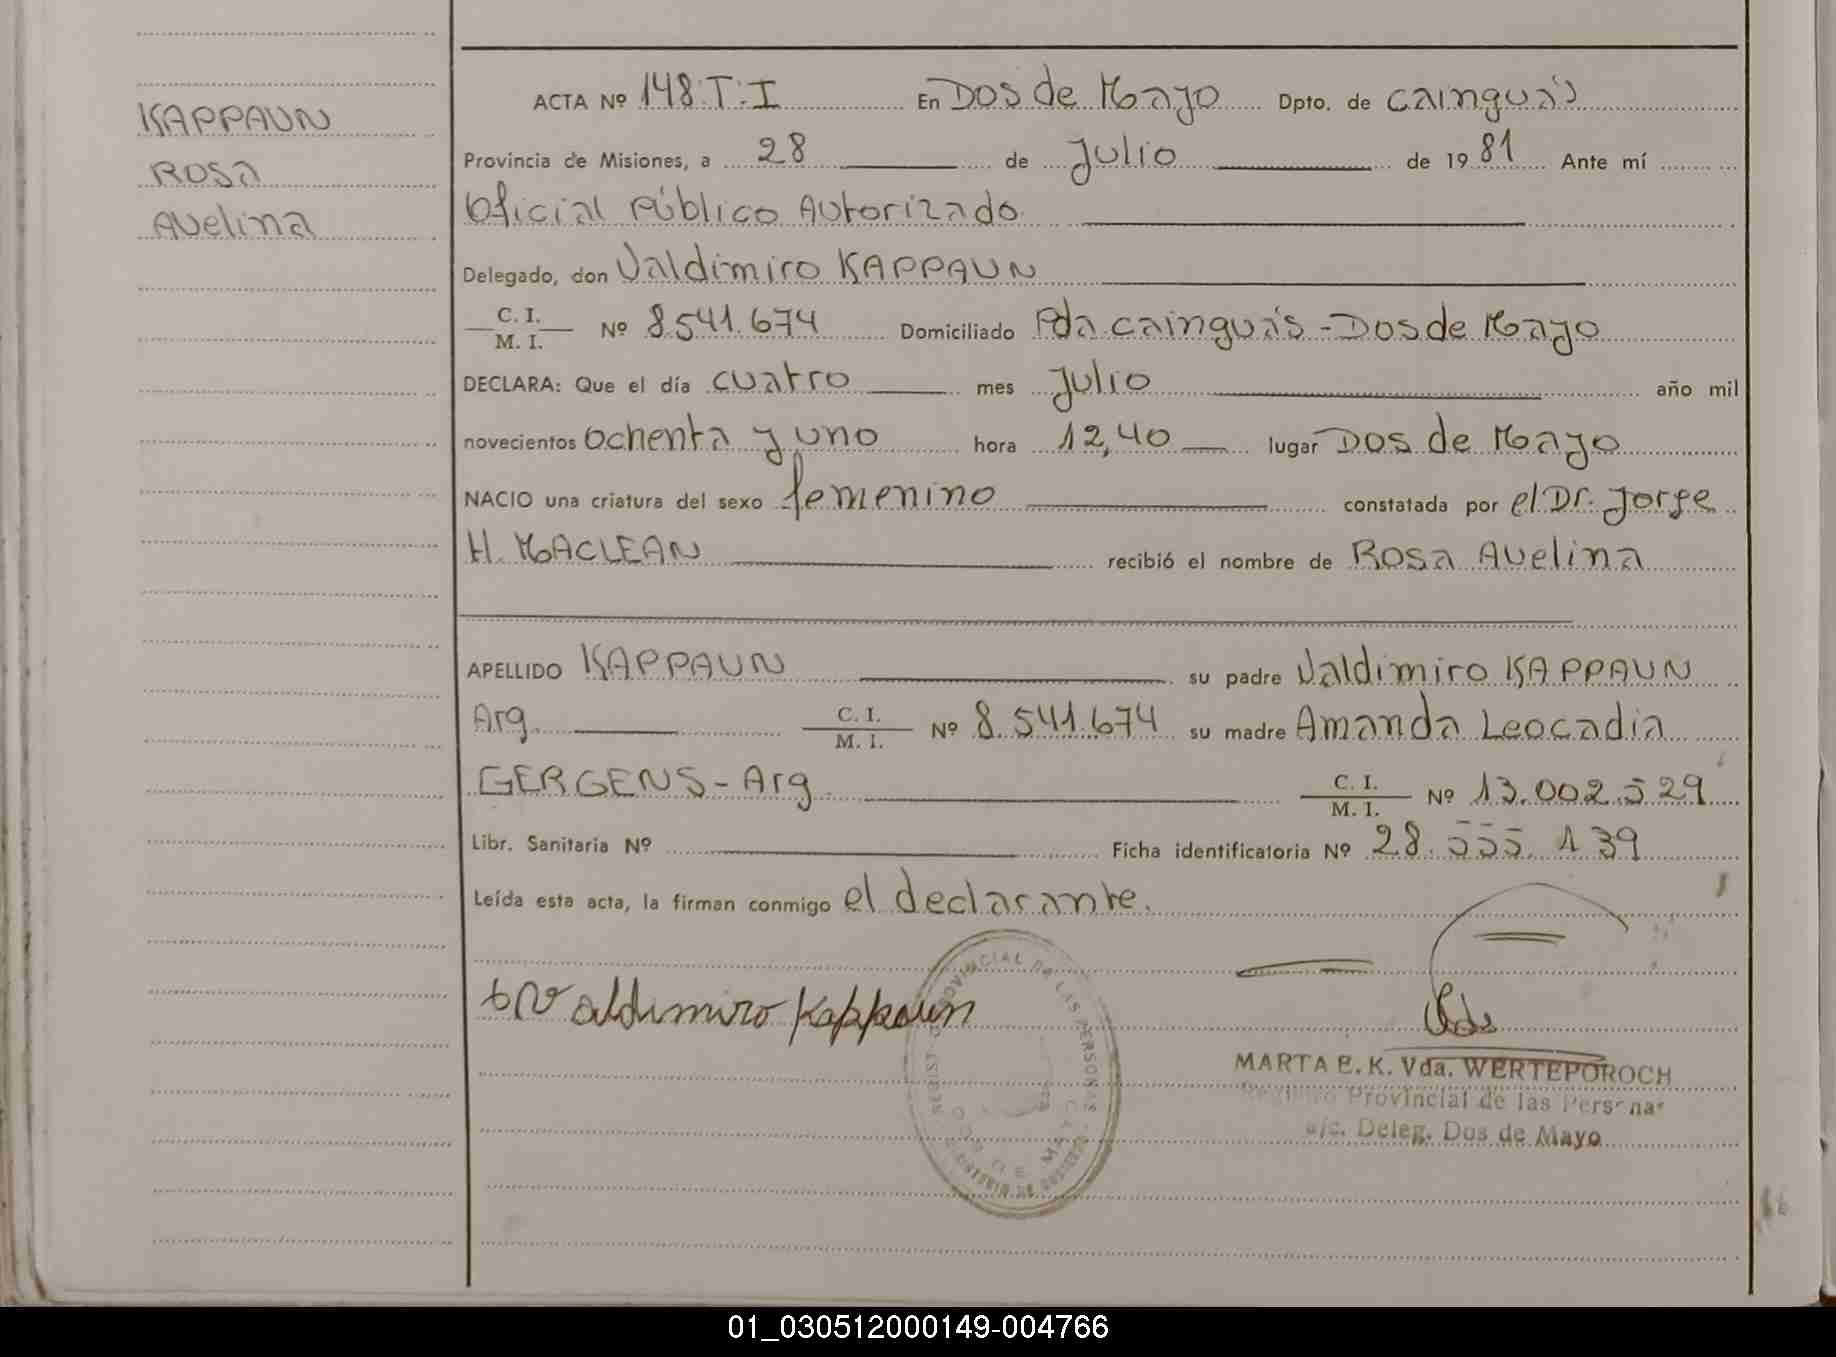 KAPPAUN
ROSA
AVelina
ACTA Nº 148.T.I En Dos de Mayo Dpto. de cainguás
Provincia de Misiones, a 28 de Julio de 1981 Ante mí
Oficial Público Autorizado
Delegado, don Valdimiro KAPPAUN
C. I.
M. I. Nº 8.541.674 Domiciliado Pda cainguás - Dos de Mayo
DECLARA: Que el día cuatro mes Julio año mil
novecientos ochenta y uno hora 12,40 lugar Dos de Mayo
NACIO una criatura del sexo femenino constatada por el Dr. Jorge
H. MACLEAN recibió el nombre de ROSA AVelina
APELLIDO KAPPAUN su padre Valdimiro KAPPAUN
Arg. C. I.
M. I. Nº 8.541.674 su madre Amanda Leocadia
GERGENS - Arg. C. I.
M. I. Nº 13.002.529
Libr. Sanitaria Nº Ficha identificatoria Nº 28.555.139
Leída esta acta, la firman conmigo el declarante.
Valdimiro Kappaun
PROVINCIAL DE LAS PERSONAS
DOS DE MAYO
MARTA E. K. Vda. WERTEPOROCH
Registro Provincial de las Personas
a/c. Deleg. Dos de Mayo
01_030512000149-004766